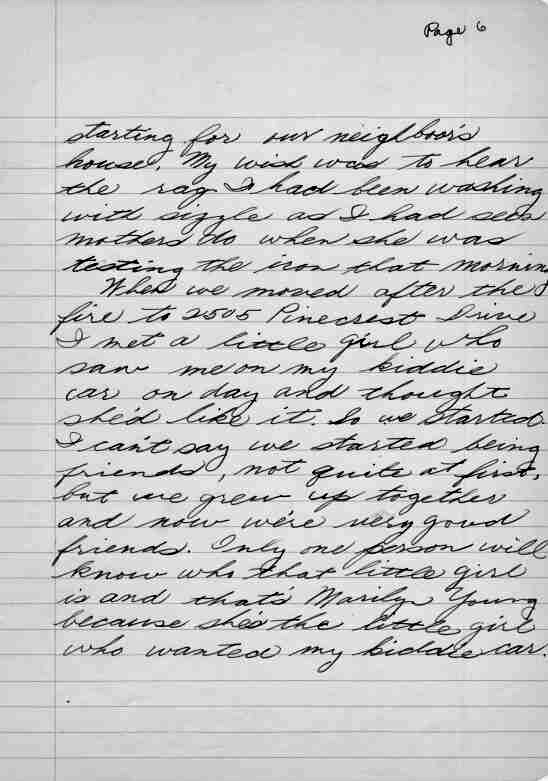 Page 6
starting for our neighboor's
house. My wish was to hear
the rag I had been washing
with sizzle as I had seen
mothers do when she was
testing the iron that morning
When we moved after the
fire to 2505 Pinecrest Drive
I met a little girl who
saw me on my kiddie
car on day and thought
she'd like it. So we started
I can't say we started being
friends, not quite at first,
but we grew up together
and now we're very good
friends. Only one person will
know who that little girl
is and that's Marilyn Young
because she's the little girl
who wanted my kiddie car.